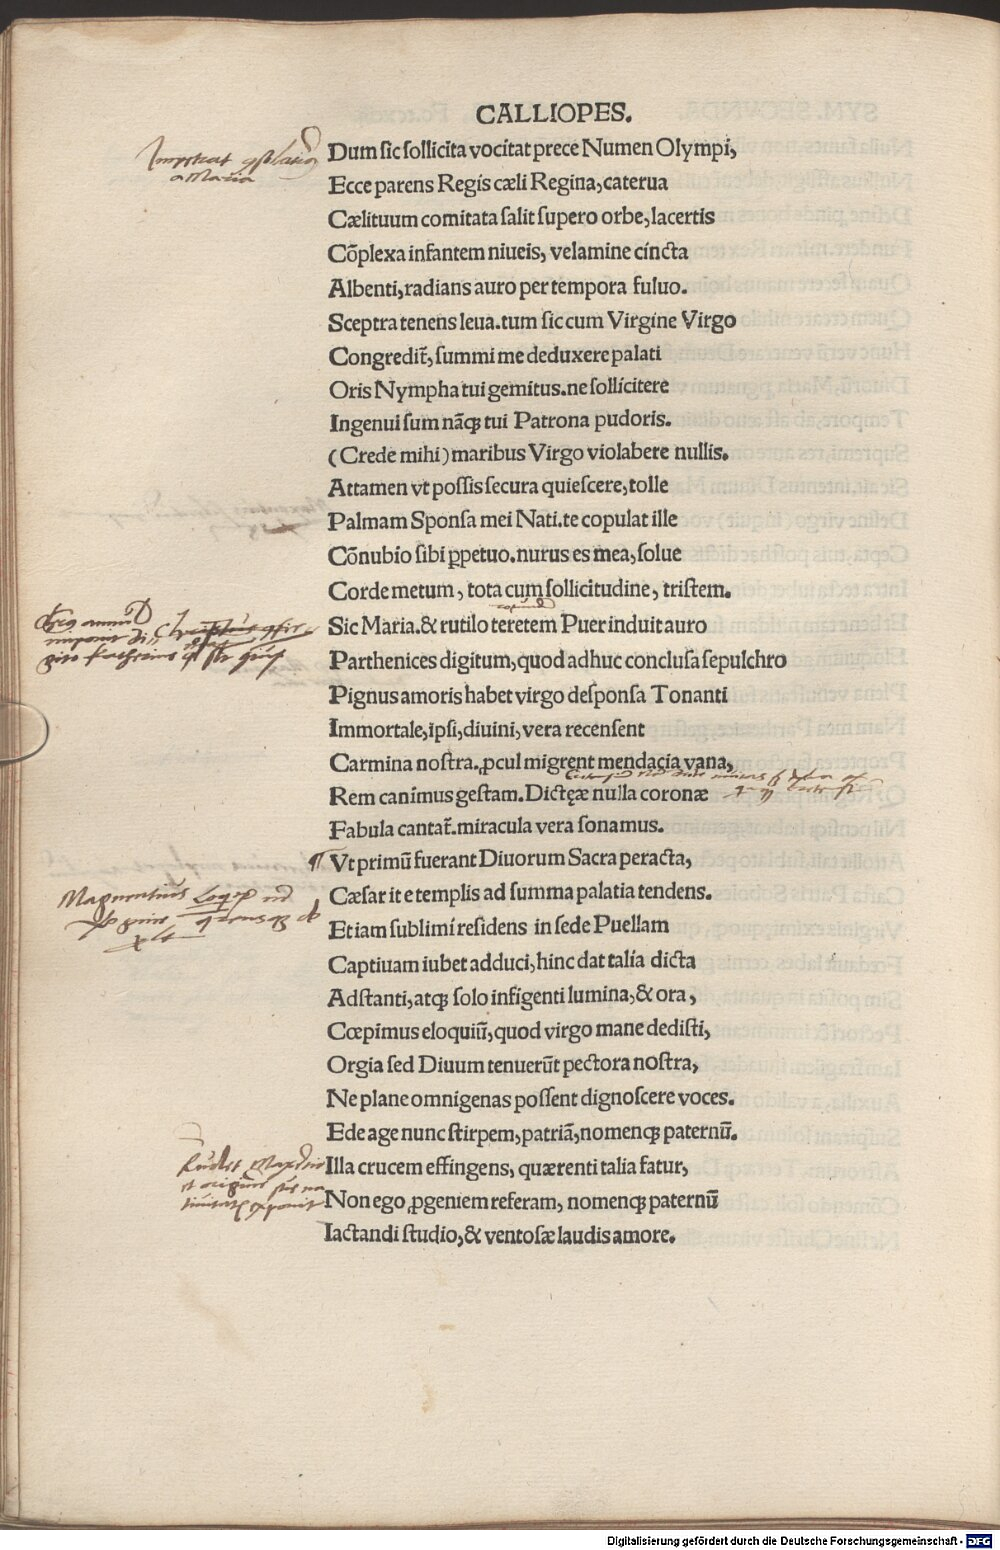 CALLIOPES.
Dum sic sollicita vocitat prece Numen Olympi,
Ecce parens Regis cæli Regina, caterua
Cælituum comitata salit supero orbe, lacertis
Cõplexa infantem niueis, velamine cincta
Albenti, radians auro per tempora fuluo.
Sceptra tenens leua. tum sic cum Virgine Virgo
Congredit̃, summi me deduxere palati
Oris Nympha tui gemitus. ne sollicitere
Ingenui sum nãqꝫ tui Patrona pudoris.
(Crede mihi) maribus Virgo violabere nullis.
Attamen vt possis secura quiescere, tolle
Palmam Sponsa mei Nati. te copulat ille
Cõnubio sibi ꝑpetuo. nurus es mea, solue
Corde metum, tota cum sollicitudine, tristem.
Sic Maria. & rutilo teretem Puer induit auro
Parthenices digitum, quod adhuc conclusa sepulchro
Pignus amoris habet virgo desponsa Tonanti
Immortale, ipsi, diuini, vera recensent
Carmina nostra. ꝓcul migrent mendacia vana,
Rem canimus gestam. Dictęæ nulla coronæ
Fabula cantat̃. miracula vera sonamus.
¶ Vt primũ fuerant Diuorum Sacra peracta,
Cæsar it e templis ad summa palatia tendens.
Et iam sublimi residens in sede Puellam
Captiuam iubet adduci, hinc dat talia dicta
Adstanti, atqꝫ solo infigenti lumina, & ora,
Cœpimus eloquiũ, quod virgo mane dedisti,
Orgia sed Diuum tenuerũt pectora nostra,
Ne plane omnigenas possent dignoscere voces.
Ede age nunc stirpem, patriã, nomenqꝫ paternũ.
Illa crucem effingens, quærenti talia fatur,
Non ego ꝓgeniem referam, nomenqꝫ paternũ
Iactandi studio, & ventosæ laudis amore.
a Maria
Magnentius
Digitalisierung gefördert durch die Deutsche Forschungsgemeinschaft - DFG